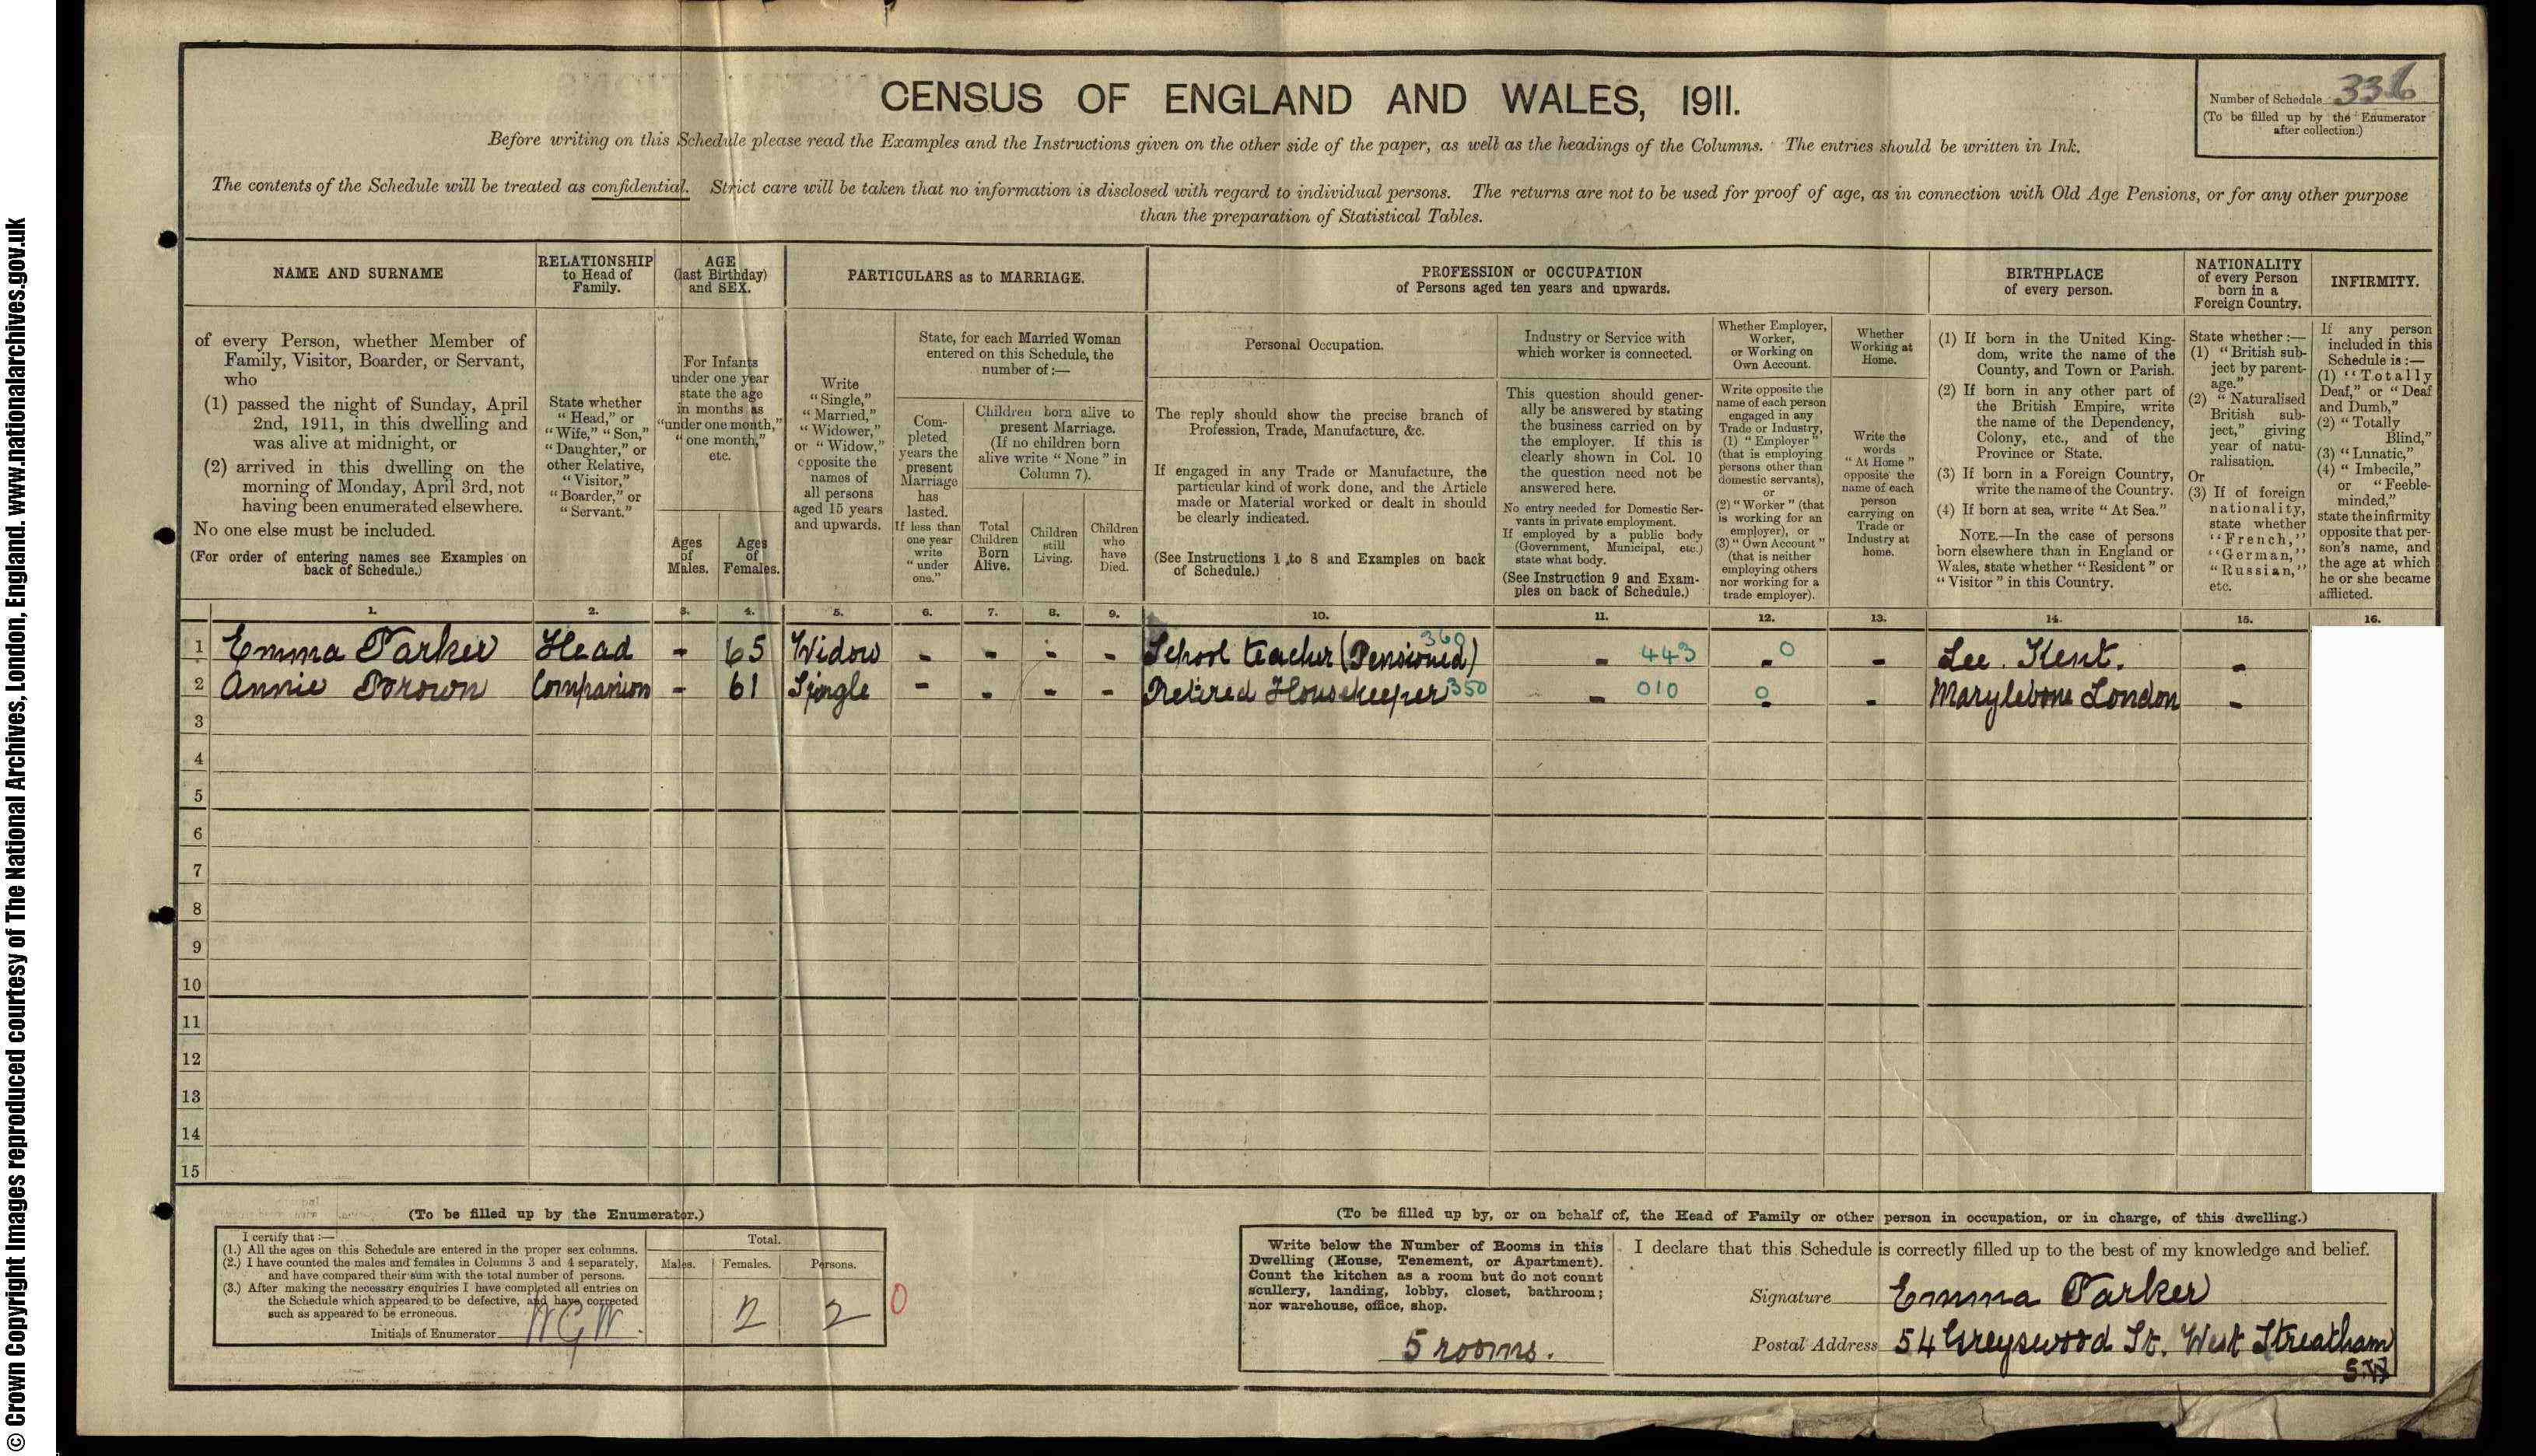 © Crown Copyright Images reproduced courtesy of The National Archives, London, England. www.nationalarchives.gov.uk
CENSUS OF ENGLAND AND WALES, 1911.
Number of Schedule 336
(To be filled up by the Enumerator
after collection.)
Before writing on this Schedule please read the Examples and the Instructions given on the other side of the paper, as well as the headings of the Columns. The entries should be written in Ink.
The contents of the Schedule will be treated as confidential. Strict care will be taken that no information is disclosed with regard to individual persons. The returns are not to be used for proof of age, as in connection with Old Age Pensions, or for any other purpose
than the preparation of Statistical Tables.
NAME AND SURNAME
of every Person, whether Member of
Family, Visitor, Boarder, or Servant,
who
(1) passed the night of Sunday, April
2nd, 1911, in this dwelling and
was alive at midnight, or
(2) arrived in this dwelling on the
morning of Monday, April 3rd, not
having been enumerated elsewhere.
No one else must be included.
(For order of entering names see Examples on
back of Schedule.)
RELATIONSHIP
to Head of
Family.
State whether
“Head,” or
“Wife,” “Son,”
“Daughter,” or
other Relative,
“Visitor,”
“Boarder,” or
“Servant.”
AGE
(last Birthday)
and SEX.
For Infants
under one year
state the age
in months as
“under one month,”
“one month,”
etc.
Ages
of
Males.
Ages
of
Females.
PARTICULARS as to MARRIAGE.
Write
“Single,”
“Married,”
“Widower,”
or “Widow,”
opposite the
names of
all persons
aged 15 years
and upwards.
State, for each Married Woman
entered on this Schedule, the
number of :—
Com-
pleted
years the
present
Marriage
has
lasted.
If less than
one year
write
“under
one.”
Children born alive to
present Marriage.
(If no children born
alive write “None” in
Column 7).
Total
Children
Born
Alive.
Children
still
Living.
Children
who
have
Died.
PROFESSION or OCCUPATION
of Persons aged ten years and upwards.
Personal Occupation.
The reply should show the precise branch of
Profession, Trade, Manufacture, &c.
If engaged in any Trade or Manufacture, the
particular kind of work done, and the Article
made or Material worked or dealt in should
be clearly indicated.
(See Instructions 1 to 8 and Examples on back
of Schedule.)
Industry or Service with
which worker is connected.
This question should gener-
ally be answered by stating
the business carried on by
the employer. If this is
clearly shown in Col. 10
the question need not be
answered here.
No entry needed for Domestic Ser-
vants in private employment.
If employed by a public body
(Government, Municipal, etc.)
state what body.
(See Instruction 9 and Exam-
ples on back of Schedule.)
Whether Employer,
Worker,
or Working on
Own Account.
Write opposite the
name of each person
engaged in any
Trade or Industry,
(1) “Employer”
(that is employing
persons other than
domestic servants),
or
(2) “Worker” (that
is working for an
employer), or
(3) “Own Account”
(that is neither
employing others
nor working for a
trade employer).
Whether
Working at
Home.
Write the
words
“At Home”
opposite the
name of each
person
carrying on
Trade or
Industry at
home.
BIRTHPLACE
of every person.
(1) If born in the United King-
dom, write the name of the
County, and Town or Parish.
(2) If born in any other part of
the British Empire, write
the name of the Dependency,
Colony, etc., and of the
Province or State.
(3) If born in a Foreign Country,
write the name of the Country.
(4) If born at sea, write “At Sea.”
NOTE.—In the case of persons
born elsewhere than in England or
Wales, state whether “Resident” or
“Visitor” in this Country.
NATIONALITY
of every Person
born in a
Foreign Country.
State whether :—
(1) “British sub-
ject by parent-
age.”
(2) “Naturalised
British sub-
ject,” giving
year of natu-
ralisation.
Or
(3) If of foreign
nationality,
state whether
“French,”
“German,”
“Russian,”
etc.
INFIRMITY.
If any person
included in this
Schedule is :—
(1) “Totally
Deaf,” or “Deaf
and Dumb,”
(2) “Totally
Blind,”
(3) “Lunatic,”
(4) “Imbecile,”
or “Feeble-
minded,”
state the infirmity
opposite that per-
son's name, and
the age at which
he or she became
afflicted.
1. 2. 3. 4. 5. 6. 7. 8. 9. 10. 11. 12. 13. 14. 15. 16.
1 Emma Parker Head - 65 Widow - - - - School teacher (Pensioned) 360 - 443 - 0 - Lee. Kent. -
2 Annie Brown Companion - 61 Single - - - - Retired Housekeeper 350 - 010 - 0 - Marylebone London -
3
4
5
6
7
8
9
10
11
12
13
14
15
(To be filled up by the Enumerator.)
I certify that :—
(1.) All the ages on this Schedule are entered in the proper sex columns.
(2.) I have counted the males and females in Columns 3 and 4 separately,
and have compared their sum with the total number of persons.
(3.) After making the necessary enquiries I have completed all entries on
the Schedule which appeared to be defective, and have corrected
such as appeared to be erroneous.
Initials of Enumerator W G W.
Total.
Males. Females. Persons.
2 2 0
(To be filled up by, or on behalf of, the Head of Family or other person in occupation, or in charge, of this dwelling.)
Write below the Number of Rooms in this
Dwelling (House, Tenement, or Apartment).
Count the kitchen as a room but do not count
scullery, landing, lobby, closet, bathroom;
nor warehouse, office, shop.
5 rooms.
I declare that this Schedule is correctly filled up to the best of my knowledge and belief.
Signature Emma Parker
Postal Address 54 Greyswood St. West Streatham
S.W